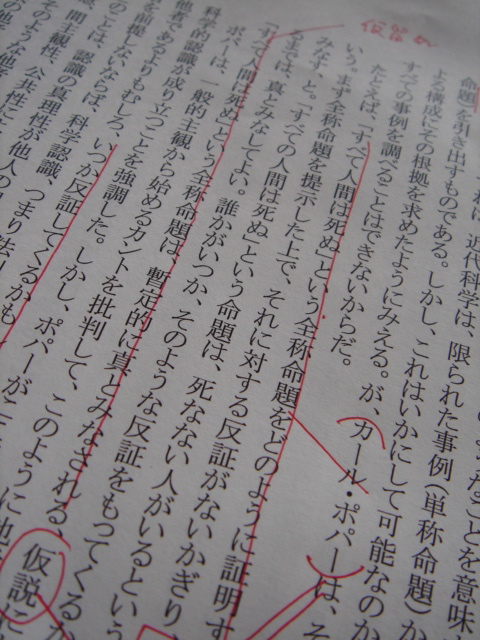 仮説
なことを意味
命題)を引き出すものである。しかし、これはいかにして可能なのか
近代科学は、限られた事例(単称命題)か
よる構成にその根拠を求めたようにみえる。が、カール・ポパーは、そ
すべての事例を調べることはできないからだ。
たとえば、「すべて人間は死ぬ」という全称命題をどのように証明す
いう。まず全称命題を提示した上で、それに対する反証がないかぎり
みなす、と。「すべての人間は死ぬ」という命題は、死なない人がいるという
るまでは、真とみなしてよい。誰かがいつか、そのような反証をもってくるか
「すべて人間は死ぬ」という全称命題は、暫定的に真とみなされる、仮説に
ポパーは、一般的主観から始めるカントを批判して、このように他
科学的認識が成り立つことを強調した。しかし、ポパーが
他者であるよりもむしろ、いつか反証してくるかも
を前提しないならば、科学認識、つまり
のことは、認識の真理性が他人の
間主観性、公共性に
そのような他者